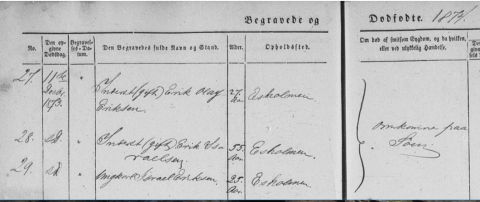 Begravede og Dødfødte. 1874.
No. Den opgivne Dødsdag. Begravelses-Datum. Den Begravedes fulde Navn og Stand. Alder. Opholdssted. Om død af smitsom Sygdom, og da hvilken, eller ved ulykkelig Hændelse.
27. 11te " Inderst (gift) Erik Olaf 27 Eskholmen
Eriksen. omkomne paa
28. " Inderst (gift) Erik Is- 55 Eskholmen.
raelsen Søen
29. " Ungkarl Israel Eriksen. 25 Eskholmen.